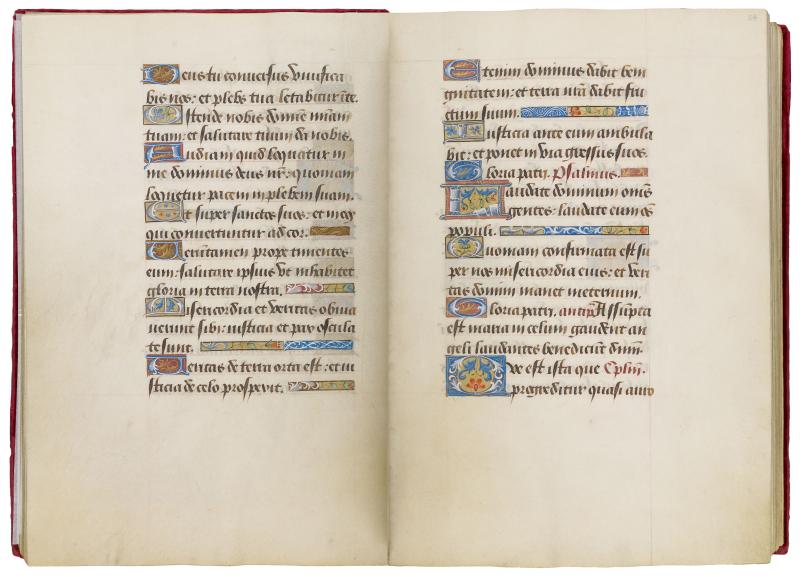 Deus tu conversus vivifica
bis nos: et plebs tua letabitur ī te.
Ostende nobis domine miam
tuam: et salutare tuum da nobis.
Audiam quid loquatur in
me dominus deus nr̄: quoniam
loquetur pacem in plebem suam.
Et super sanctos suos: et in eos
qui convertuntur ad cor.
Verūtamen prope timentes
eum: salutare ipsius vt inhabitet
gloria in terra nostra.
Misericordia et veritas obvia
uerunt sibi: iusticia et pax oscula
te sunt.
Veritas de terra orta est: et iu
sticia de celo prospexit.
24
Etenim dominus dabit beni
gnitatem: et terra nr̄a dabit fru
ctum suum.
Iusticia ante eum ambula
bit: et ponet in via gressus suos.
Gloria patri. Psalmus.
Laudate dominum om̄s
gentes: laudate eum om̄s
populi.
Quoniam confirmata est su
per nos misericordia eius: et veri
tas domini manet ineternum.
Gloria patri. antip̄. Assumpta
est maria in celum gaudent an
geli laudantes benedicūt dn̄m.
Que est ista que Cplm̄.
progreditur quasi auro